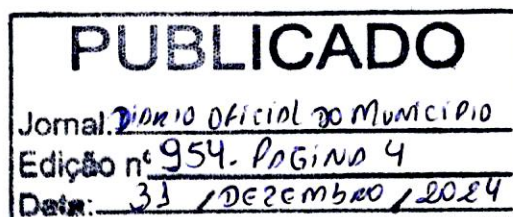 PUBLICADO
Jornal: DIÁRIO OFICIAL DO MUNICIPIO
Edição nº 954. PAGINA 4
Data: 31 / DEZEMBRO / 2024